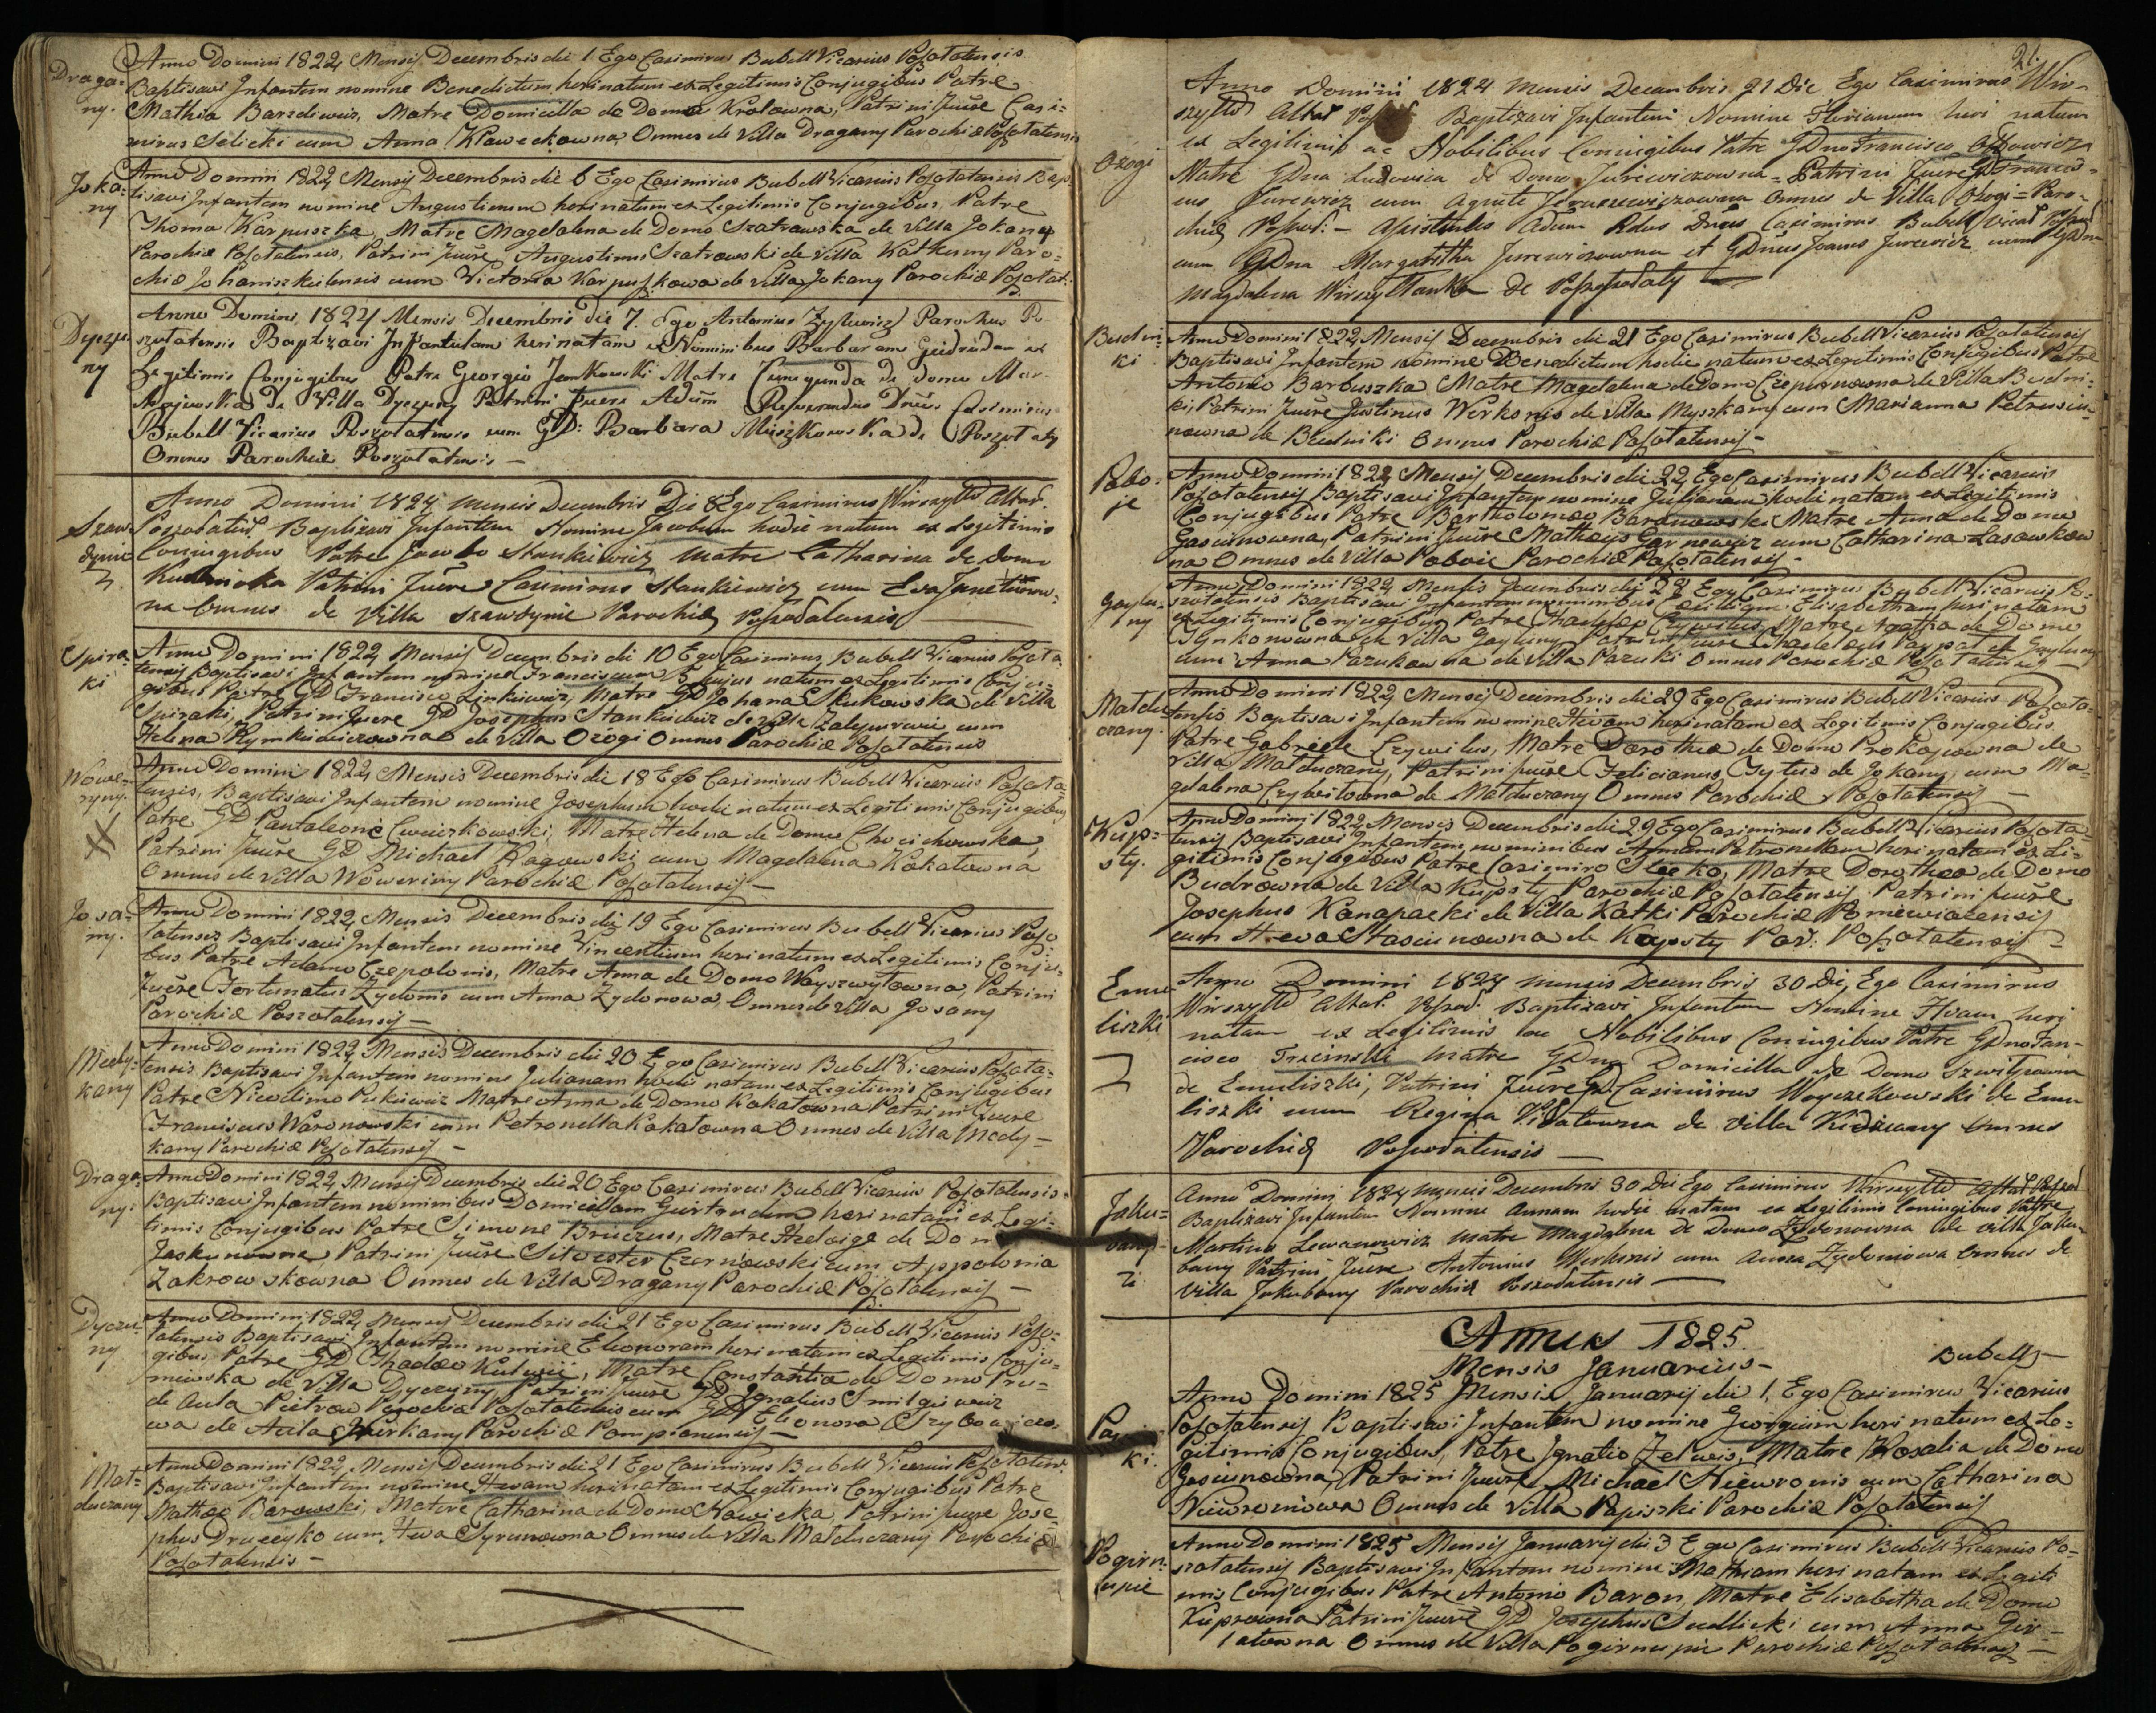 Draga=
ny.
Anno Domini 1824 Mensis Decembris die 1 Ego Casimirus Bubell Vicarius Poszotatensis
Baptisavi Infantem nomine Benedictum heri natum ex Legitimis Conjugibus Patre
Mathia Barzdiewicz, Matre Domicilla de Domo Krolowna, Patrini fuere Casi=
mirus Selicki cum Anna Kławeckowna Omnes de Villa Dragany Parochiæ Poszotatensis
Joka=
ny
Anno Domini 1824 Mensis Decembris die 6 Ego Casimirus Bubell Vicarius Poszotatensis Bap=
tisavi Infantem nomine Augustinum heri natum ex Legitimis Conjugibus, Patre
Thoma Karpuszka, Matre Magdalena de Domo Szatrawska de Villa Jokany
Parochiæ Poszotatensis, Patrini fuere Augustinus Szatrowski de Villa Paro=
chiæ Johaniszkielensis cum Victoria Karpuszkowa de Villa Jokany Parochiæ Poszotat:
Dyczu
ny
Anno Domini 1824 Mensis Decembris die 7. Ego Antonius Parochus Po
szotatensis Baptizavi Infantulam heri natam Nominibus Barbaram Geidrudam ex
Legitimis Conjugibus Patre Georgio Jankowski Matre Cunegunda de domo Mar
de Villa Dyczuny Patrini fuere Adm̃ Reverendus Dnus Casimirus
Bubell Vicarius Poszotatensis cum GD: Barbara Muszkowska de Poszotaty
Omnes Parochiæ Poszotatensis —
Szaw
dynie
Anno Domini 1824 Mensis Decembris Die 8 Ego Casimirus Wirszyłło Altar.
Baptizavi Infantem Nomine Jacobum hodie natum ex Legitimis
Coniugibus Patre Jacobo Stankiewicz Matre Catharina de Domo
Patrini fuere Casimirus Stankiewicz cum Eva
na Omnes de Villa Szawdynie Parochiæ
Spira=
ki
Anno Domini 1824 Mensis Decembris die 10 Ego Casimirus Bubell Vicarius Poszota
tensis Baptisavi Infantem nomine Franciscum 5 hujus natum ex Legitimis Conju=
gibus Patre GD Francisco Linkiewicz, Matre GD Johana Skukowska de Villa
Spiraki, Patrini fuere GD Josephus Stankiewicz de Villa cum
Helena Rymkiewiczowna de Villa Ozogi Omnes Parochiæ Poszotatensis
Wowe=
ryny.
Anno Domini 1824 Mensis Decembris die 18 Ego Casimirus Bubell Vicarius Poszota=
tensis, Baptisavi Infantem nomine Josephum hodie natum ex Legitimis Conjugibus
Patre GD Pantaleone Cwieczkowski, Matre Helena de Domo Chocichowska,
Patrini fuere GD Michael Ragowski cum Magdalena Kakatowna
Omnes de Villa Woweriny Parochiæ Poszotatensis —
Josa=
ny.
Anno Domini 1824 Mensis Decembris die 19 Ego Casimirus Bubell Vicarius Poszo
tatensis Baptisavi Infantem nomine Vincentium heri natum ex Legitimis Conju=
bus Patre Adamo Czepolonis, Matre Anna de Domo Wayszwytowna, Patrini
fuere Fortunatus Zydonis cum Anna Zydonowa, Omnes de Villa Josany
Parochiæ Poszotatensis —
Medy=
kany
Anno Domini 1824 Mensis Decembris die 20 Ego Casimirus Bubell Vicarius Poszota=
tensis Baptisavi Infantem nomine Julianam hodie natam ex Legitimis Conjugibus
Patre Nicodimo Matre Anna de Domo Kakatowna Patrini fuere
Franciscus Waronowski cum Petronella Kakatowna Omnes de Villa Medy=
kany Parochiæ Poszotatensis —
Draga=
ny.
Anno Domini 1824 Mensis Decembris die 20 Ego Casimirus Bubell Vicarius Poszotatensis
Baptisavi Infantem nominibus Domicillam Geirtrudem heri natam ex Legi=
timis Conjugibus Patre Simone Bruczus, Matre Hedvige de Dom
Jaskunowna Patrini fuere Silvester Czerniewski cum Appolonia
Zakrowskowna Omnes de Villa Dragany Parochiæ Poszotatensis —
Dyczu=
ny
Anno Domini 1824 Mensis Decembris die 21 Ego Casimirus Bubell Vicarius Poszo=
tatensis Baptisavi Infantem nomine Eleonoram heri natam ex Legitimis Conju=
gibus Patre GD Thadæo Matre Constantia de Domo Pru=
niewska de Villa Dyczuny, Patrini fuere GD Ignatius Smilgiewicz
de Aula Parochiæ Poszotatensis cum GD Eleonora
wa de Aula Parochiæ Pompianensis —
Mat=
duczany
Anno Domini 1824 Mensis Decembris die 21 Ego Casimirus Bubell Vicarius Poszotaten.
Baptisavi Infantem nomine Hevam heri natam ex Legitimis Conjugibus Patre
Mathæo Barowski, Matre Catharina de Domo Nowicka, Patrini fuere Jose=
phus Druceyko cum Heva Syrunowna Omnes de Villa Matduczany Parochiæ
Poszotatensis —
21.
Ozogi
Anno Domini 1824 Mensis Decembris 21 Die Ego Casimirus Wir=
szyłło Altar Baptizavi Infantem Nomine Florianum heri natum
ex Legitimis ac Nobilibus Coniugibus Patre GDno Francisco
Matre GDna Ludovica de Domo Jurewiczowna = Patrini fuere GD Francis=
cus Jurewicz cum Agnete Omnes de Villa Ozogi = Paro=
chiæ — Assistentes Adm Rdus Dnus Casimirus Bubell Vicar
cum GDna Margaritha Jurewiczowna et GDnus Joanes Jurewicz cum GDna
Magdalena de
Budni=
ki
Anno Domini 1824 Mensis Decembris die 21 Ego Casimirus Bubell Vicarius Poszotatensis
Baptisavi Infantem nomine Benedictum hodie natum ex Legitimis Conjugibus Patre
Antonio Barbuszka Matre Magdalena de Domo de Villa Budni=
ki, Patrini fuere Justinus Werkonis de Villa Myszkany cum Marianna Petrusiu=
nowna de Budniki Omnes Parochiæ Poszotatensis —
Pobo=
je
Anno Domini 1824 Mensis Decembris die 22 Ego Casimirus Bubell Vicarius
Poszotatensis Baptisavi Infantem nomine Julianam hodie natam ex Legitimis
Conjugibus Patre Bartholomæo Baranowski Matre Anna de Domo
Gasiunowna, Patrini fuere Mathæus cum Catharina Lasowkow
na Omnes de Villa Poboie Parochiæ Poszotatensis —
Gaylu=
ny
Anno Domini 1824 Mensis Decembris die 28 Ego Casimirus Bubell Vicarius Po=
szotatensis Baptisavi Infantem nominibus Elisabetham heri natam
ex Legitimis Conjugibus Patre Matre Agatha de Domo
de Villa Gayluny Patrini fuere
cum Anna Pazukowna de Villa Pazuki Omnes Parochiæ Poszotatensis —
Matdu
czany.
Anno Domini 1824 Mensis Decembris die 29 Ego Casimirus Bubell Vicarius Poszota=
tensis Baptisavi Infantem nomine Hevam heri natam ex Legitimis Conjugibus
Patre Gabriele Czywilus, Matre Dorothea de Domo Prokopowna de
Villa Matduczany, Patrini fuere Felicianus Tytus de Jokany cum Ma=
gdalena Czywilowna de Matduczany Omnes Parochiæ Poszotatensis —
Kup=
sty.
Anno Domini 1824 Mensis Decembris die 29 Ego Casimirus Bubell Vicarius Poszota=
tensis Baptisavi Infantem nominibus Annam Petronellam heri natam ex Le=
gitimis Conjugibus Patre Casimiro Matre Dorothea de Domo
Budrowna de Villa Kupsty Parochiæ Poszotatensis Patrini fuere
Josephus Kanapacki de Villa Katki Parochiæ Poniewiazensis
cum Heva Stasiunowna de Kupsty Par: Poszotatensis —
Emu
liszki
Anno Domini 1824 Mensis Decembris 30 Die Ego Casimirus
Wirszyłło Altar. Baptizavi Infantem Nomine Hevam heri
natam ex Legitimis ac Nobilibus Coniugibus Patre GDno Fran=
cisco Trzcinski Matre GDna Domicilla de Domo
de Emuliszki, Patrini fuere GD Casimirus Woyczekowski de Emu
liszki cum Regina de Villa Omnes
Parochiæ —
Jaku=
bany
Anno Domini 1824 Mensis Decembris 30 Die Ego Casimirus Wirszyłło Altar
Baptizavi Infantem Nomine Annam hodie natam ex Legitimis Coniugibus Patre
Martino Lewanowicz Matre Magdalena de Domo Zydonowna de Villa Jaku
bany Patrini fuere Antonius Werkonis cum Anna Zydoniowa Omnes de
Villa Jakubany Parochiæ —
Annus 1825.
Mensis Januarius —
Bubell
Pa
ki.
Anno Domini 1825 Mensis Januarij die 1. Ego Casimirus Vicarius
Poszotatensis Baptisavi Infantem nomine Georgium heri natum ex Le=
gitimis Conjugibus, Patre Ignatio Zelwis, Matre Rosalia de Domo
Gasiunowna, Patrini fuere Michael Niewronis cum Catharina
Niewroniowa Omnes de Villa Papiszki Parochiæ Poszotatensis
Pogirn=
iupie
Anno Domini 1825 Mensis Januarij die 3 Ego Casimirus Bubell Vicarius Po=
szotatensis Baptisavi Infantem nomine heri natam ex Legiti
mis Conjugibus Patre Antonio Baron, Matre Elisabetha de Domo
Kuprowna Patrini fuere GD Josephus cum Anna Gir=
tatowna Omnes de Villa Pogirniupie Parochiæ Poszotatensis —